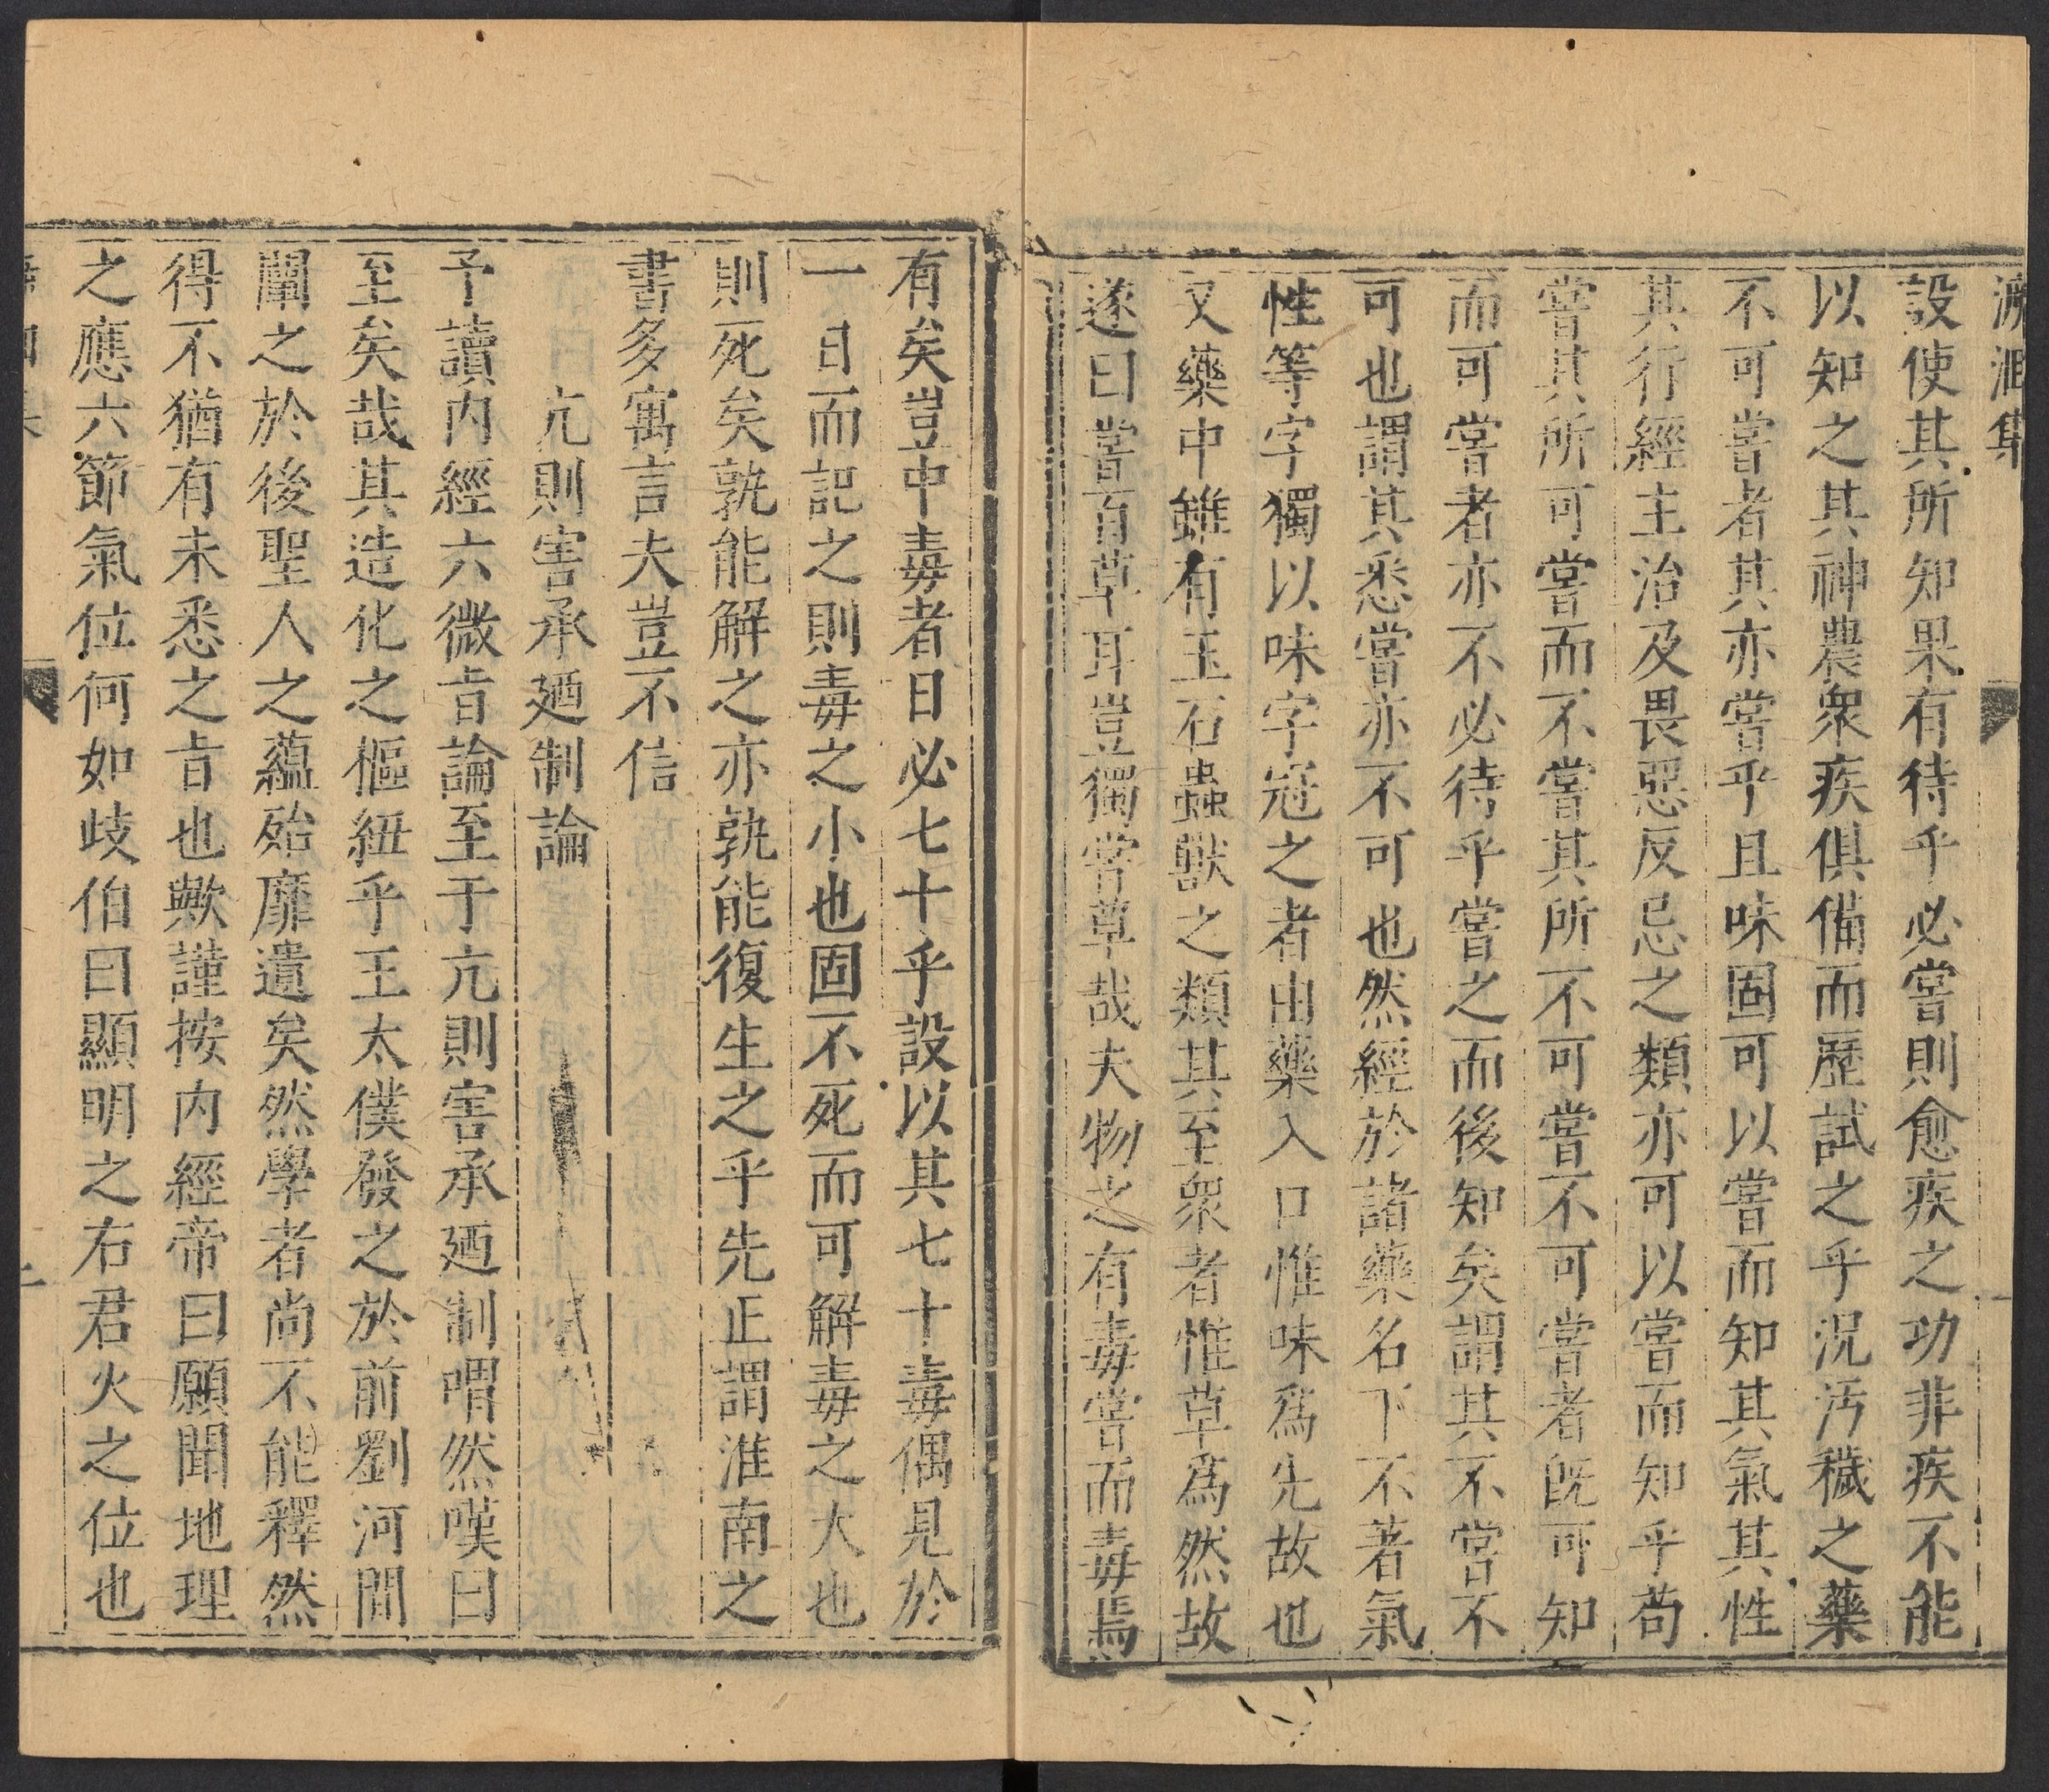 溯洄集
設使其所知果有待乎必嘗則愈疾之功非疾不能
以知之其神農衆疾俱備而歷試之乎況汚穢之藥
不可嘗者其亦嘗乎且味固可以嘗而知其氣其性
其行經主治及畏惡反忌之類亦可以嘗而知乎苟
嘗其所可嘗而不嘗其所不可嘗不可嘗者旣可知
而可嘗者亦不必待乎嘗之而後知矣謂其不嘗不
可也謂其悉嘗亦不可也然經於諸藥名下不著氣
性等字獨以味字冠之者由藥入口惟味爲先故也
又藥中雖有玉石蟲獸之類其至衆者惟草爲然故
遂曰嘗百草耳豈獨嘗草哉夫物之有毒嘗而毒焉
有矣豈中毒者日必七十乎設以其七十毒偶見於
一日而記之則毒之小也固不死而可解毒之大也
則死矣孰能解之亦孰能復生之乎先正謂淮南之
書多寓言夫豈不信
亢則害承廼制論
予讀內經六微旨論至于亢則害承廼制喟然嘆曰
至矣哉其造化之樞紐乎王太僕發之於前劉河間
闡之於後聖人之蘊殆靡遺矣然學者尚不能釋然
得不猶有未悉之旨也歟謹按內經帝曰願聞地理
之應六節氣位何如歧伯曰顯明之右君火之位也